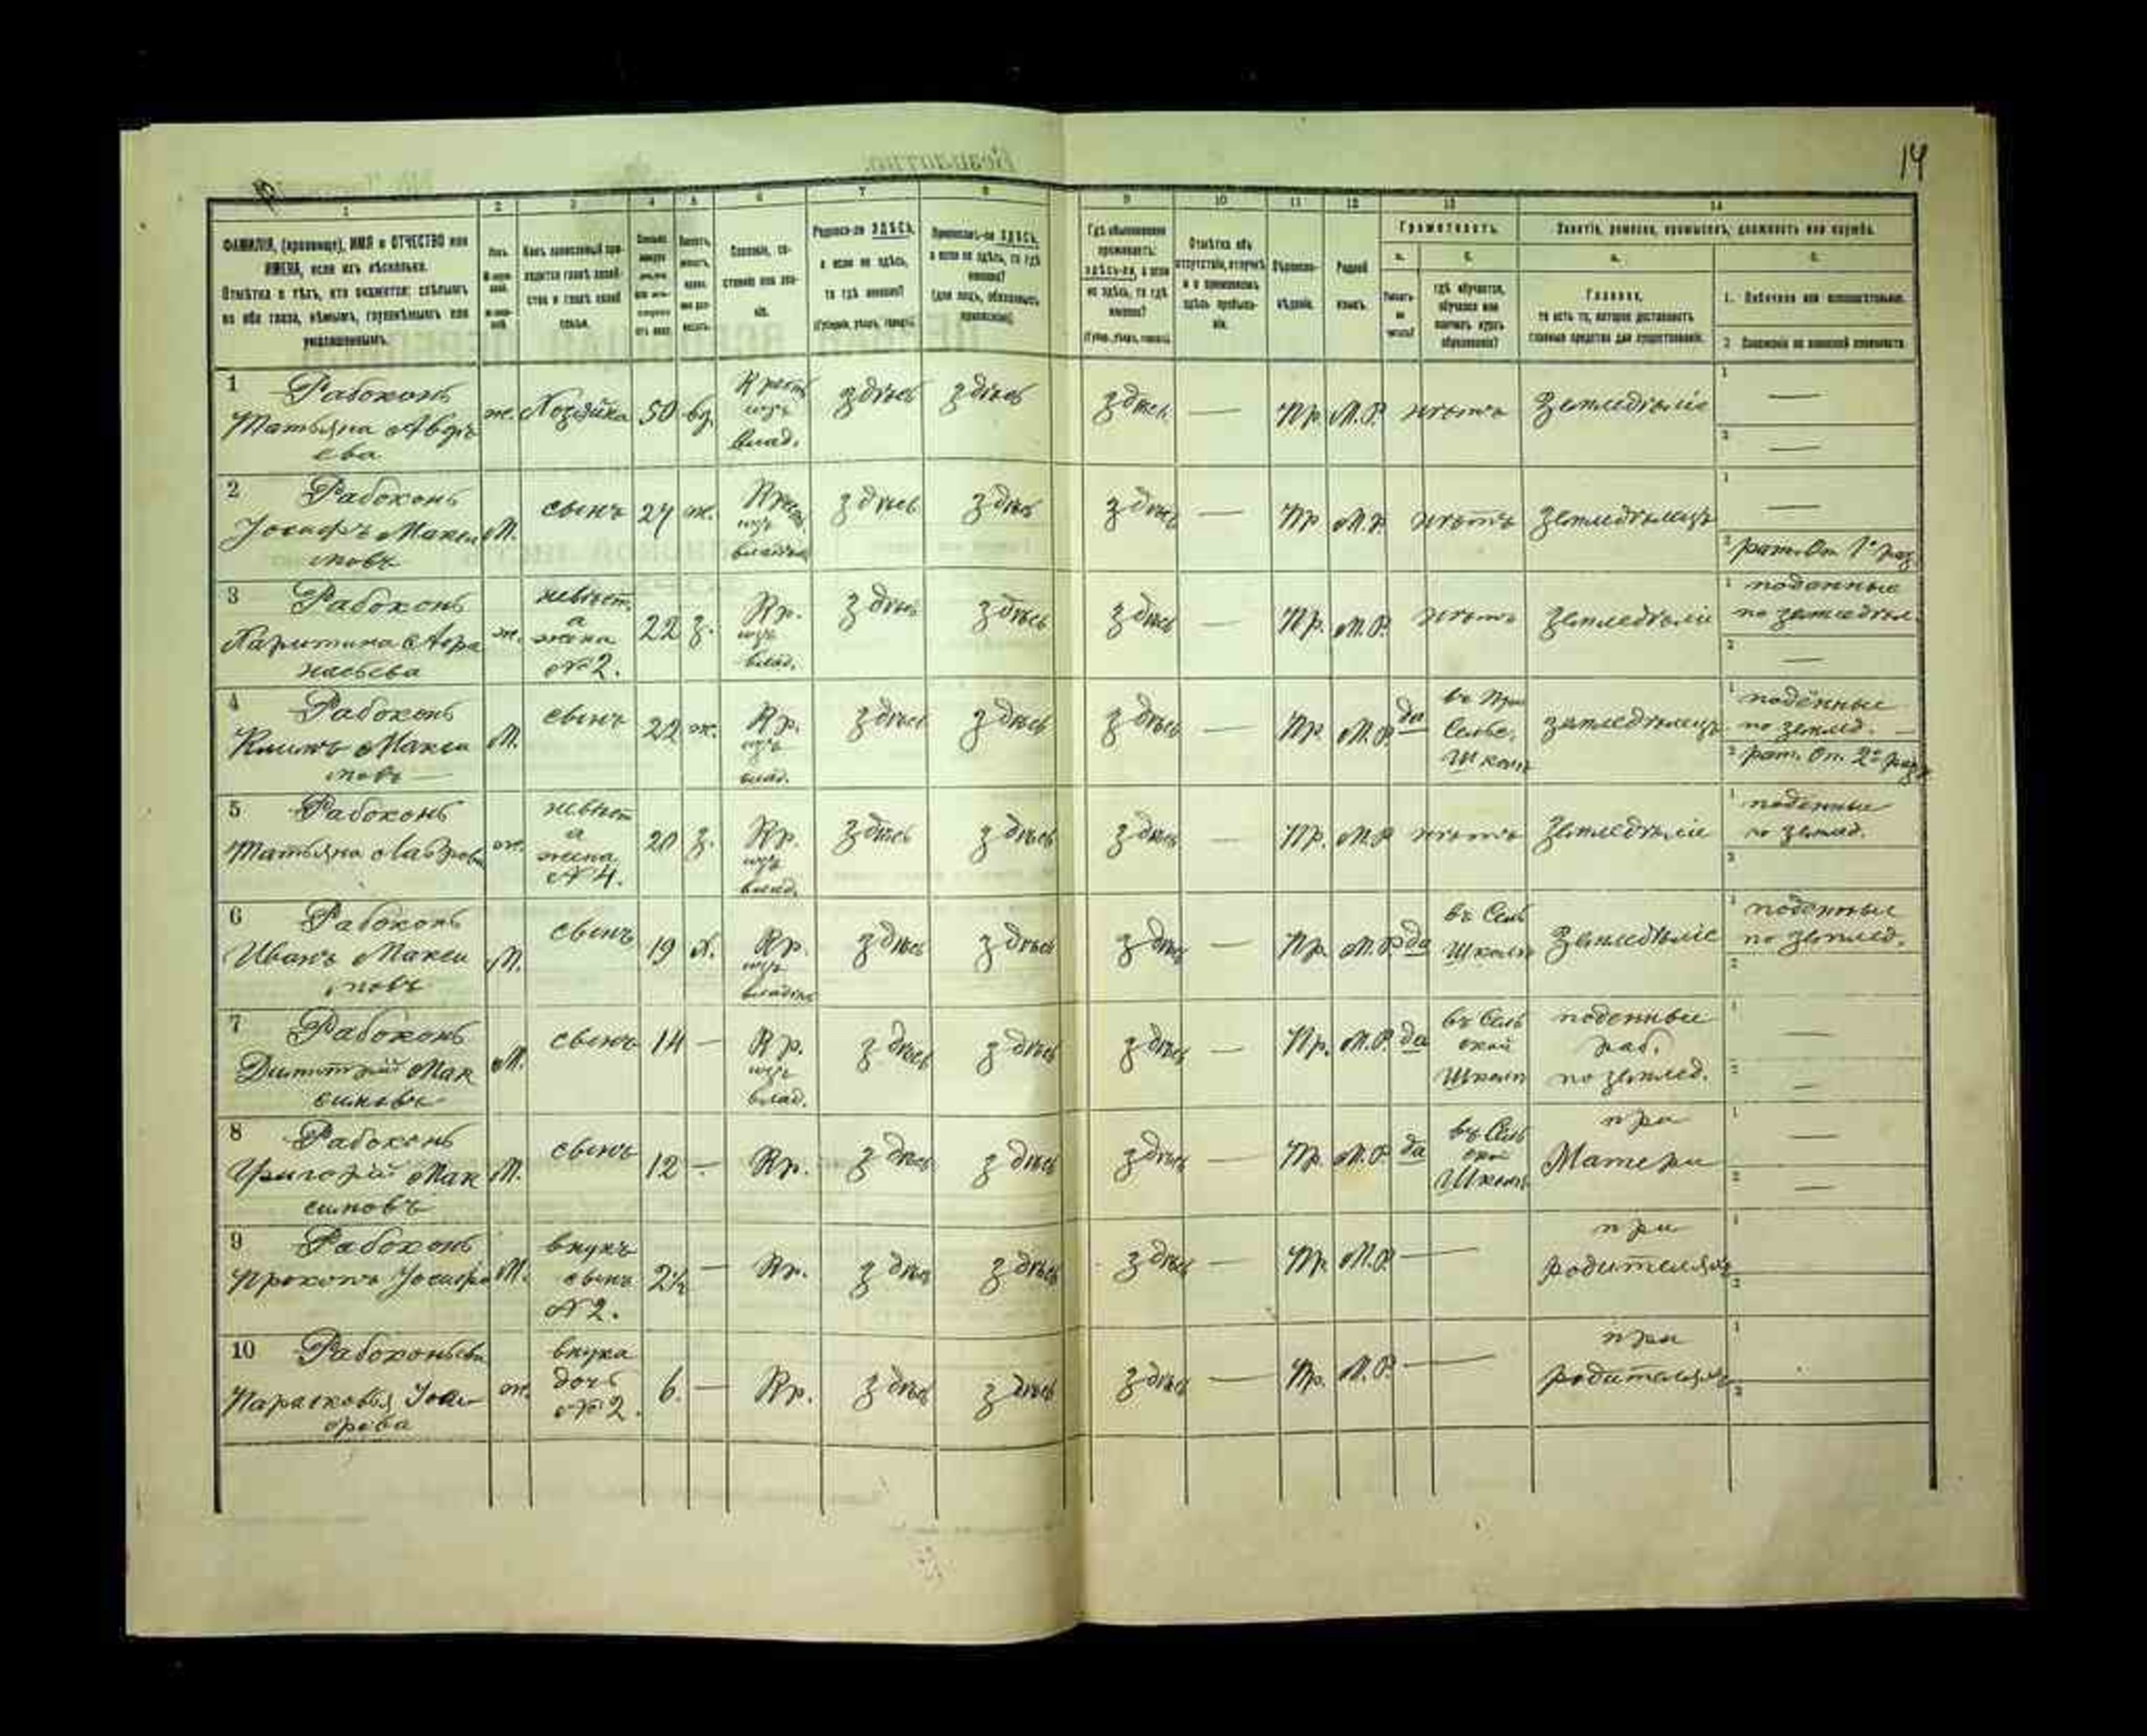 14
1 2 3 4 5 6 7 8 9 10 11 12 13 14
ФАМИЛІЯ, (прозвище), ИМЯ и ОТЧЕСТВО или
ИМЕНА, если ихъ нѣсколько.
Отмѣтка о тѣхъ, кто окажется: слѣпымъ
на оба глаза, нѣмымъ, глухонѣмымъ или
умалишеннымъ.
Родился-ли ЗДѢСЬ,
а если не здѣсь,
то гдѣ именно?
(Губернія, уѣздъ, городъ).
Приписанъ-ли ЗДѢСЬ,
а если не здѣсь, то гдѣ
именно?
(для лицъ, обязанныхъ
припискою).
Гдѣ обыкновенно
проживаетъ:
здѣсь-ли, а если
не здѣсь, то гдѣ
именно?
(Губер., уѣздъ, городъ).
Отмѣтка объ
отсутствіи, отлучкѣ
и о временномъ
здѣсь пребыва-
ніи.
Вѣроиспо-
вѣданіе.
Родной
языкъ.
Грамотность.
а. б.
Умѣетъ-
ли
читать?
гдѣ обучается,
обучался или
кончилъ курсъ
образованія?
Занятіе, ремесло, промыселъ, должность или служба.
а. б.
Главное,
то есть то, которое доставляетъ
главныя средства для существованія.
1. Побочное или вспомогательное.
2. Положеніе по воинской повинности.
1 Рабоконь
Татьяна Авдѣ
ева
ж. Хозяйка 50 вд.
Крест.
изъ
влад.
здѣсь здѣсь здѣсь — Пр. М.Р. нѣтъ Земледѣліе
1 —
2 —
2 Рабоконь
Іосифъ Макси
мовъ
М. сынъ 24 ж.
Крест.
изъ
здѣсь здѣсь здѣсь — Пр М.Р. нѣтъ Земледѣлецъ
1 —
2 рат. Оп. 1° раз.
3 Рабоконь
Харитина Афа
насьева
ж.
невѣст.
а
жена
№ 2.
22 з.
Кр.
изъ
влад.
здѣсь здѣсь здѣсь — Пр. М.Р. нѣтъ Земледѣліе
1 поденные
по земледѣл.
2 —
4 Рабоконь
Климъ Макси
мовъ —
М. сынъ 22 ж.
Кр.
изъ
влад.
здѣсь здѣсь здѣсь — Пр. М.Р. да
Школѣ
земледѣлецъ
1 подённые
по землед. —
2 рат. Оп. 2° раз.
5 Рабоконь
Татьяна Лаврова
ж.
невѣст
а
жена
№ 4.
20 з.
Кр.
изъ
влад.
здѣсь здѣсь здѣсь — Пр. М.Р. нѣтъ Земледѣліе
1 подённые
по землед.
2
6 Рабоконь
Иванъ Макси
мовъ
М. сынъ 19 х.
Кр.
изъ
здѣсь здѣсь здѣсь — Пр. М.Р. да
въ Сель
Школѣ
Земледѣліе
1 подённые
по землед.
2
7 Рабоконь
Димитрій Мак
симовъ
М. сынъ 14 —
Кр.
изъ
влад.
здѣсь здѣсь здѣсь — Пр. М.Р. да
въ Сель
ской
Школѣ
поденные
раб.
по землед.
1 —
2 —
8 Рабоконь
Григорій Мак
симовъ
М. сынъ 12 — Кр. здѣсь здѣсь здѣсь — Пр. М.Р. да
въ Сель
ской
Школѣ
при
Матери
1 —
2 —
9 Рабоконь
Прокопъ Іосифо
М.
внукъ
сынъ
№ 2.
2½ — Кр. здѣсь здѣсь здѣсь — Пр. М.Р. —
при
родителяхъ
1
2
10
Парасковья Іоси
фова
ж.
внука
дочь
№ 2.
6. — Кр. здѣсь здѣсь здѣсь — Пр. М.Р. —
при
родителяхъ
1
2